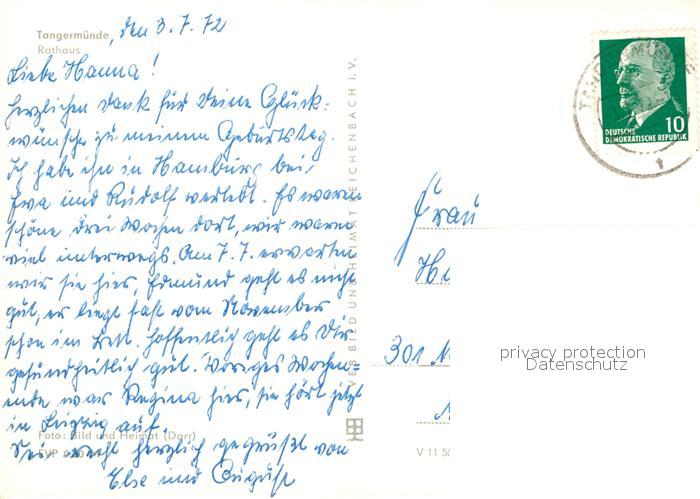 Tangermünde, den 3.7.72
Rathaus
Liebe Hanna!
Herzlichen Dank für Deine Glück-
wünsche zu meinem Geburtstag.
Ich habe ihn in Hamburg bei
Ewa und Rudolf verlebt. Es waren
schöne drei Wochen dort, wir waren
viel unterwegs. Am 7.7. erwarten
wir sie hier, Edmund geht es nicht
gut, er liegt fast vom November
schon im Bett. Hoffentlich geht es Dir
gesundheitlich gut. Voriges Wochen-
ende war Regina hier, sie hört jetzt
in Leipzig auf.
Foto: Bild und Heimat (Darr)
Sei recht herzlich gegrüßt von
EVP 0,20
Else und August
VEB BILD UND HEIMAT REICHENBACH i. V.
DEUTSCHE
DEMOKRATISCHE REPUBLIK
10
TANGERMÜNDE
1
Frau
301 M
privacy protection
Datenschutz
V 11 50